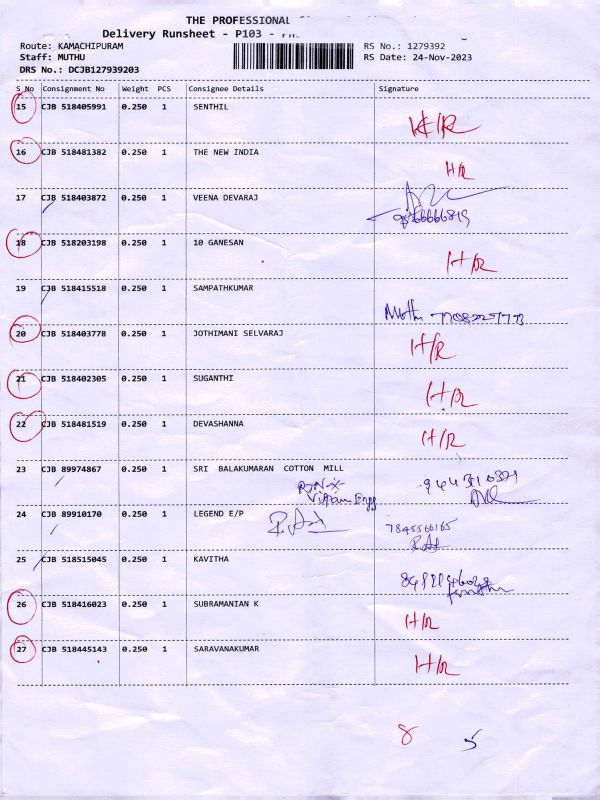 THE PROFESSIONAL
Delivery Runsheet - P103 -
Route: KAMACHIPURAM
RS No.: 1279392
Staff: MUTHU
RS Date: 24-Nov-2023
DRS No.: DCJB127939203
S No Consignment No Weight PCS Consignee Details Signature
15 CJB 518405991 0.250 1 SENTHIL H/R
16 CJB 518481382 0.250 1 THE NEW INDIA H/R
17 CJB 518403872 0.250 1 VEENA DEVARAJ
18 CJB 518203198 0.250 1 10 GANESAN H/R
19 CJB 518415518 0.250 1 SAMPATHKUMAR
Muthu
20 CJB 518403778 0.250 1 JOTHIMANI SELVARAJ H/R
21 CJB 518402305 0.250 1 SUGANTHI H/R
22 CJB 518481519 0.250 1 DEVASHANNA H/R
23 CJB 89974867 0.250 1 SRI BALAKUMARAN COTTON MILL
24 CJB 89910170 0.250 1 LEGEND E/P
25 CJB 518515045 0.250 1 KAVITHA
26 CJB 518416023 0.250 1 SUBRAMANIAN K H/R
27 CJB 518445143 0.250 1 SARAVANAKUMAR H/R
8 5